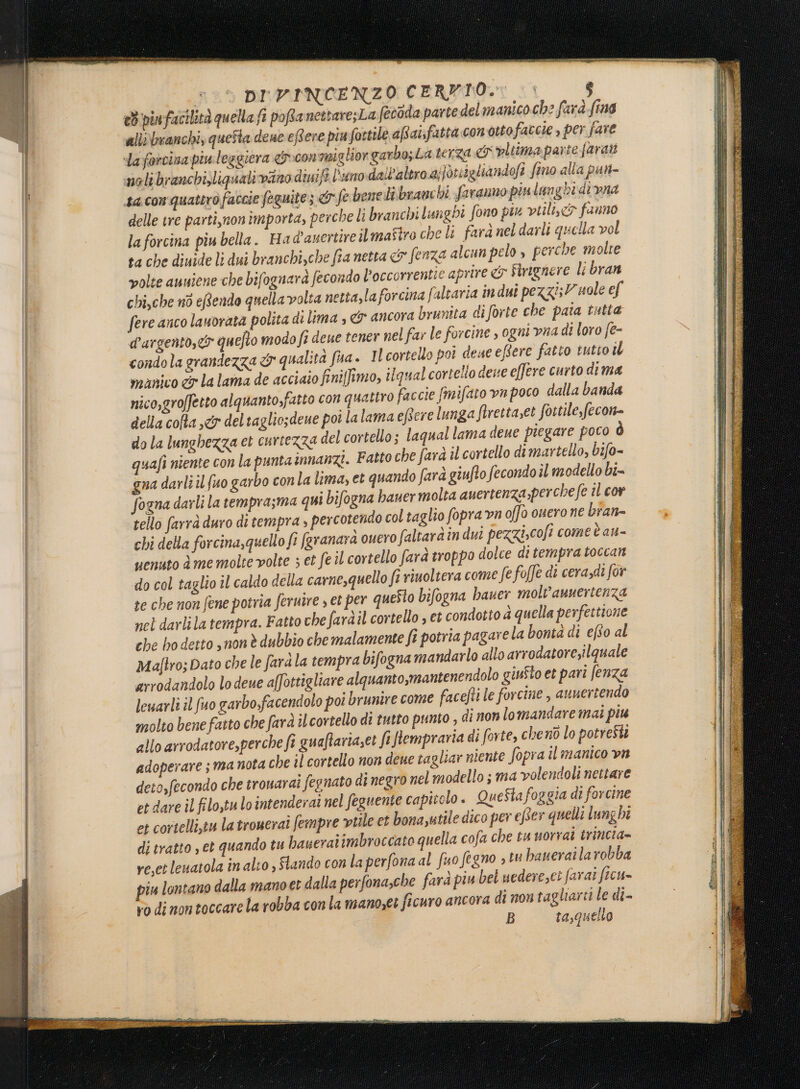 DI VINCENZO CERVIO. 5
cō piu facilità quella ſi poſſa nettare; La ſecōda parte del manico che farà fina
alli branchi, queſta deue eſſere piu ſottile aſſai, fatta con otto faccie, per fare
la forcina piu leggiera & con miglior garbo; La terza & vltima parte ſaran
no li branchi, liquali vāno diuiſi l'uno dall'altro aſſottigliandoſi fino alla pun-
ta con quattro faccie ſeguite; & ſe bene li branchi ſaranno piu lunghi di vna
delle tre parti, non importa, perche li branchi lunghi ſono piu vtili, & fanno
la forcina piu bella. Ha d'auertire il maſtro che li farà nel darli quella vol
ta che diuide li dui branchi, che ſia netta & ſenza alcun pelo, perche molte
volte auuiene che biſognarà ſecondo l'occorrentie aprire & ſtrignere li bran
chi, che nō eſſendo quella volta netta, la forcina ſaltaria in dui pezzi; Vuole eſ
ſere anco lauorata polita di lima, & ancora brunita di ſorte che paia tutta
d'argento, & queſto modo ſi deue tener nel far le forcine, ogni vna di loro ſe-
condo la grandezza & qualità ſua. Il cortello poi deue eſſere fatto tutto il
manico & la lama de acciaio finiſſimo, ilqual cortello deue eſſere curto di ma
nico, groſſetto alquanto, fatto con quattro faccie ſmiſato vn poco dalla banda
della coſta, & del taglio; deue poi la lama eſſere lunga ſtretta, et ſottile, ſecon-
do la lunghezza et curtezza del cortello; laqual lama deue piegare poco ò
quaſi niente con la punta innanzi. Fatto che farà il cortello di martello, biſo-
gna darli il ſuo garbo con la lima, et quando ſarà giuſto ſecondo il modello bi-
ſogna darli la tempra; ma qui biſogna hauer molta auertenza, perche ſe il cor
tello ſarrà duro di tempra, percotendo col taglio ſopra vn oſſo ouero ne bran-
chi della forcina, quello ſi ſgranarà ouero ſaltarà in dui pezzi, coſi come è au-
uenuto à me molte volte; et ſe il cortello ſarà troppo dolce di tempra toccan
do col taglio il caldo della carne, quello ſi riuoltera come ſe foſſe di cera, di ſor
te che non ſene potria ſeruire, et per queſto biſogna hauer molt'auuertenza
nel darli la tempra. Fatto che farà il cortello, et condotto à quella perfettione
che ho detto, non è dubbio che malamente ſi potria pagare la bontà di eſſo al
Maſtro; Dato che le farà la tempra biſogna mandarlo allo arrodatore, ilquale
arrodandolo lo deue aſſottigliare alquanto, mantenendolo giuſto et pari ſenza
leuarli il ſuo garbo, facendolo poi brunire come faceſti le forcine, auuertendo
molto bene fatto che farà il cortello di tutto punto, di non lo mandare mai piu
allo arrodatore, perche ſi guaſtaria, et ſi ſtempraria di ſorte, che nō lo potreſti
adoperare; ma nota che il cortello non deue tagliar niente ſopra il manico vn
deto, ſecondo che trouarai ſegnato di negro nel modello; ma volendoli nettare
et dare il filo, tu lo intenderai nel ſeguente capitolo. Queſta foggia di forcine
et cortelli, tu la trouerai ſempre vtile et bona, utile dico per eſſer quelli lunghi
di tratto, et quando tu hauerai imbroccato quella coſa che tu uorrai trincia-
re, et leuatola in alto, ſtando con la perſona al ſuo ſegno, tu hauerai la robba
piu lontano dalla mano et dalla perſona, che farà piu bel uedere, et ſarai ſicu-
ro di non toccare la robba con la mano, et ſicuro ancora di non tagliarti le di-
B ta, quello